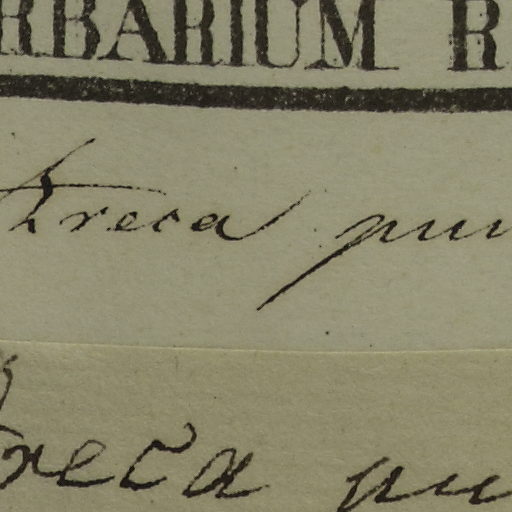 RBARIUM R
Areca pu
reca pu